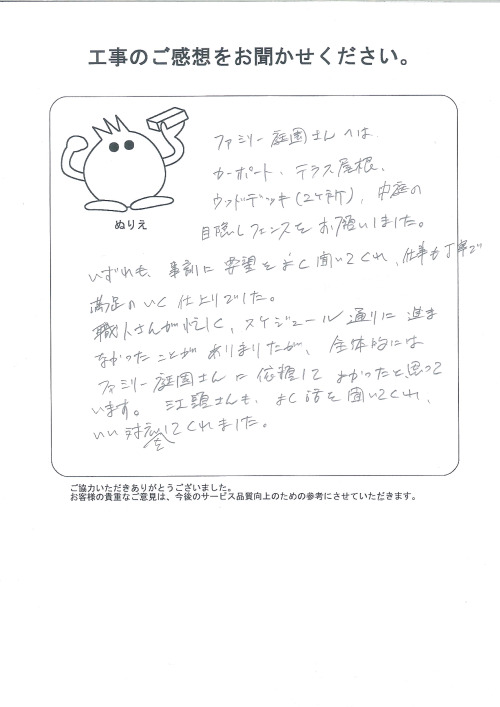 工事のご感想をお聞かせください。
ぬりえ
ファミリー庭園さんへは
カーポート、テラス屋根、
ウッドデッキ(2ヶ所)、中庭の
目隠しフェンスをお願いしました。
いずれも、事前に要望をよく聞いてくれ、仕事も丁寧で
満足のいく仕上りでした。
職人さんが忙しく、スケジュール通りに進ま
なかったことがありましたが、全体的には
ファミリー庭園さんに依頼してよかったと思って
います。江頭さんも、よく話を聞いてくれ、
いい対応をしてくれました。
ご協力いただきありがとうございました。
お客様の貴重なご意見は、今後のサービス品質向上のための参考にさせていただきます。